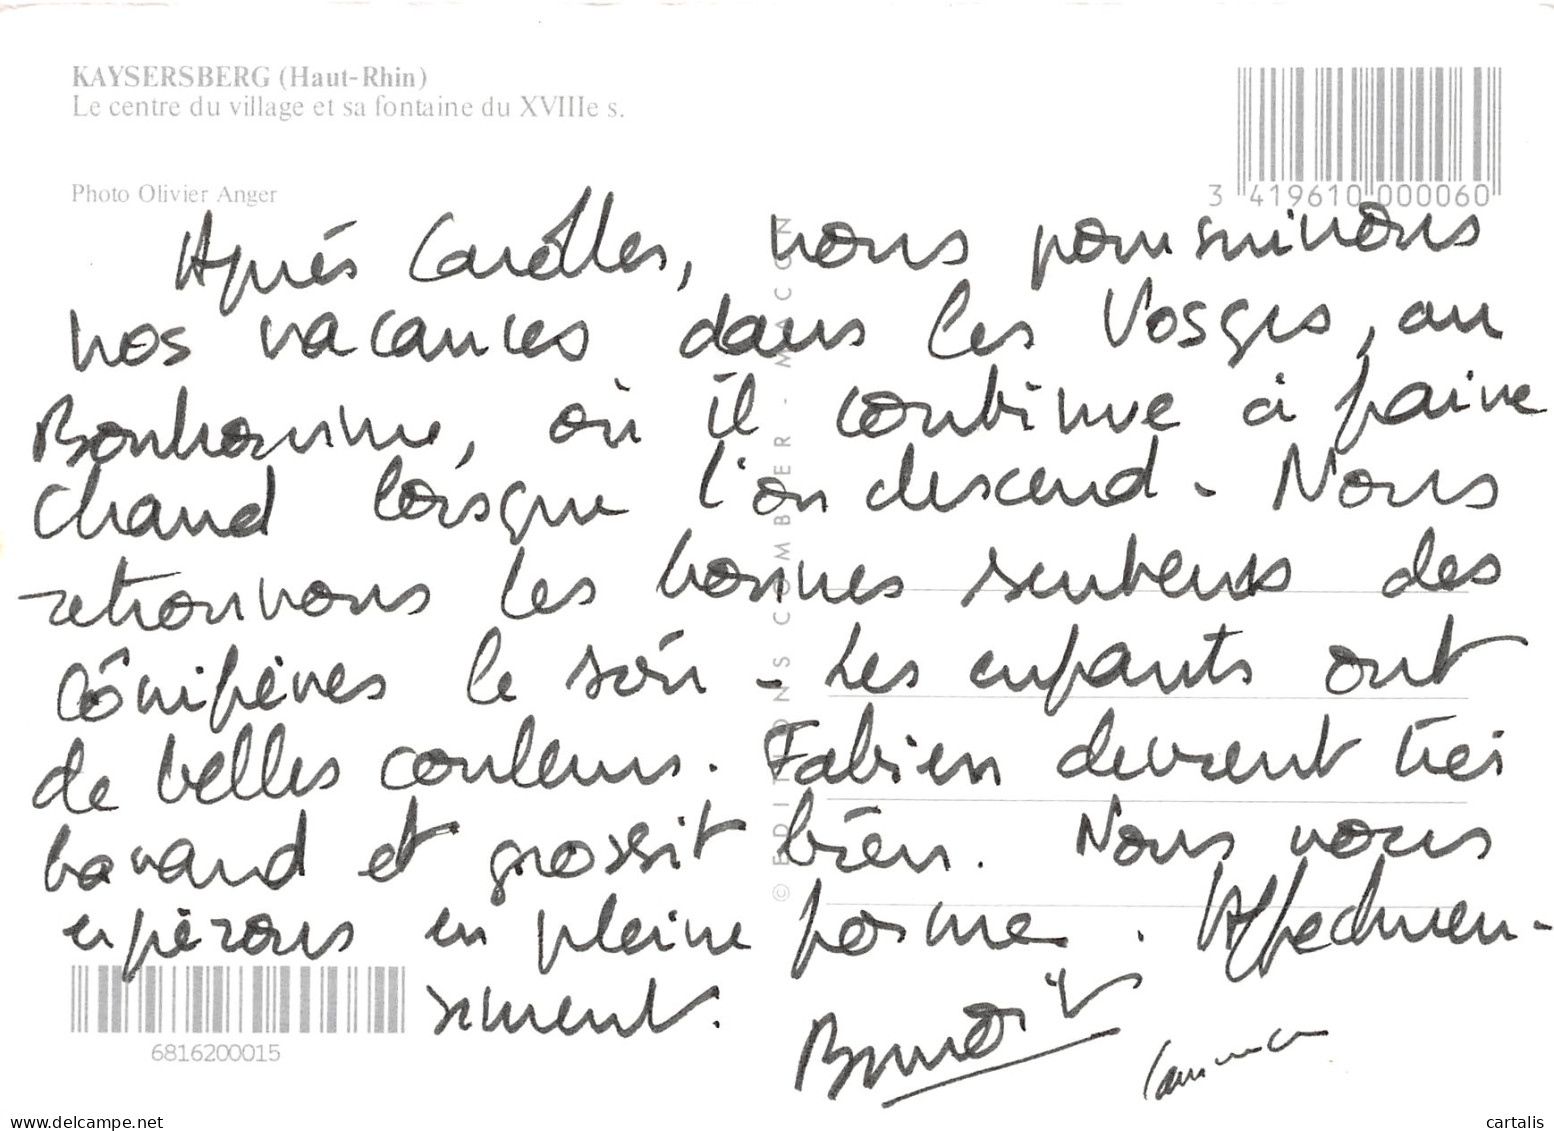 KAYSERSBERG (Haut-Rhin)
Le centre du village et sa fontaine du XVIIIe s.
Photo Olivier Anger
3 419610 000060
Après Carolles, nous poursuivons
nos vacances dans les Vosges, au
Bonhomme, où il continue à faire
chaud lorsque l'on descend. Nous
retrouvons les bonnes senteurs des
conifères le soir. Les enfants ont
de belles couleurs. Fabien devient très
bavard et grossit bien. Nous vous
espérons en pleine forme. Affectueu-
sement.
Benoît
© EDITIONS COMBIER - MACON
6816200015
www.delcampe.net
cartalis